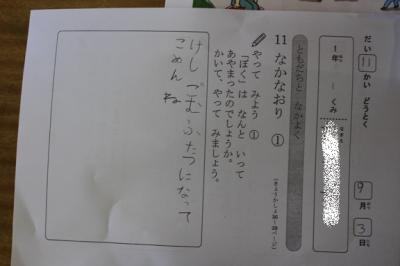 だい 11 かい どうとく
9月 3日
1年 1くみ
ともだちと なかよく
11 なかなおり ①
(きょうかしょ26～29ページ)
やって みよう ①
「ぼく」は なんと いって
あやまったのでしょうか。
かいて、やって みましょう。
けしごむふたつになって
ごめんね